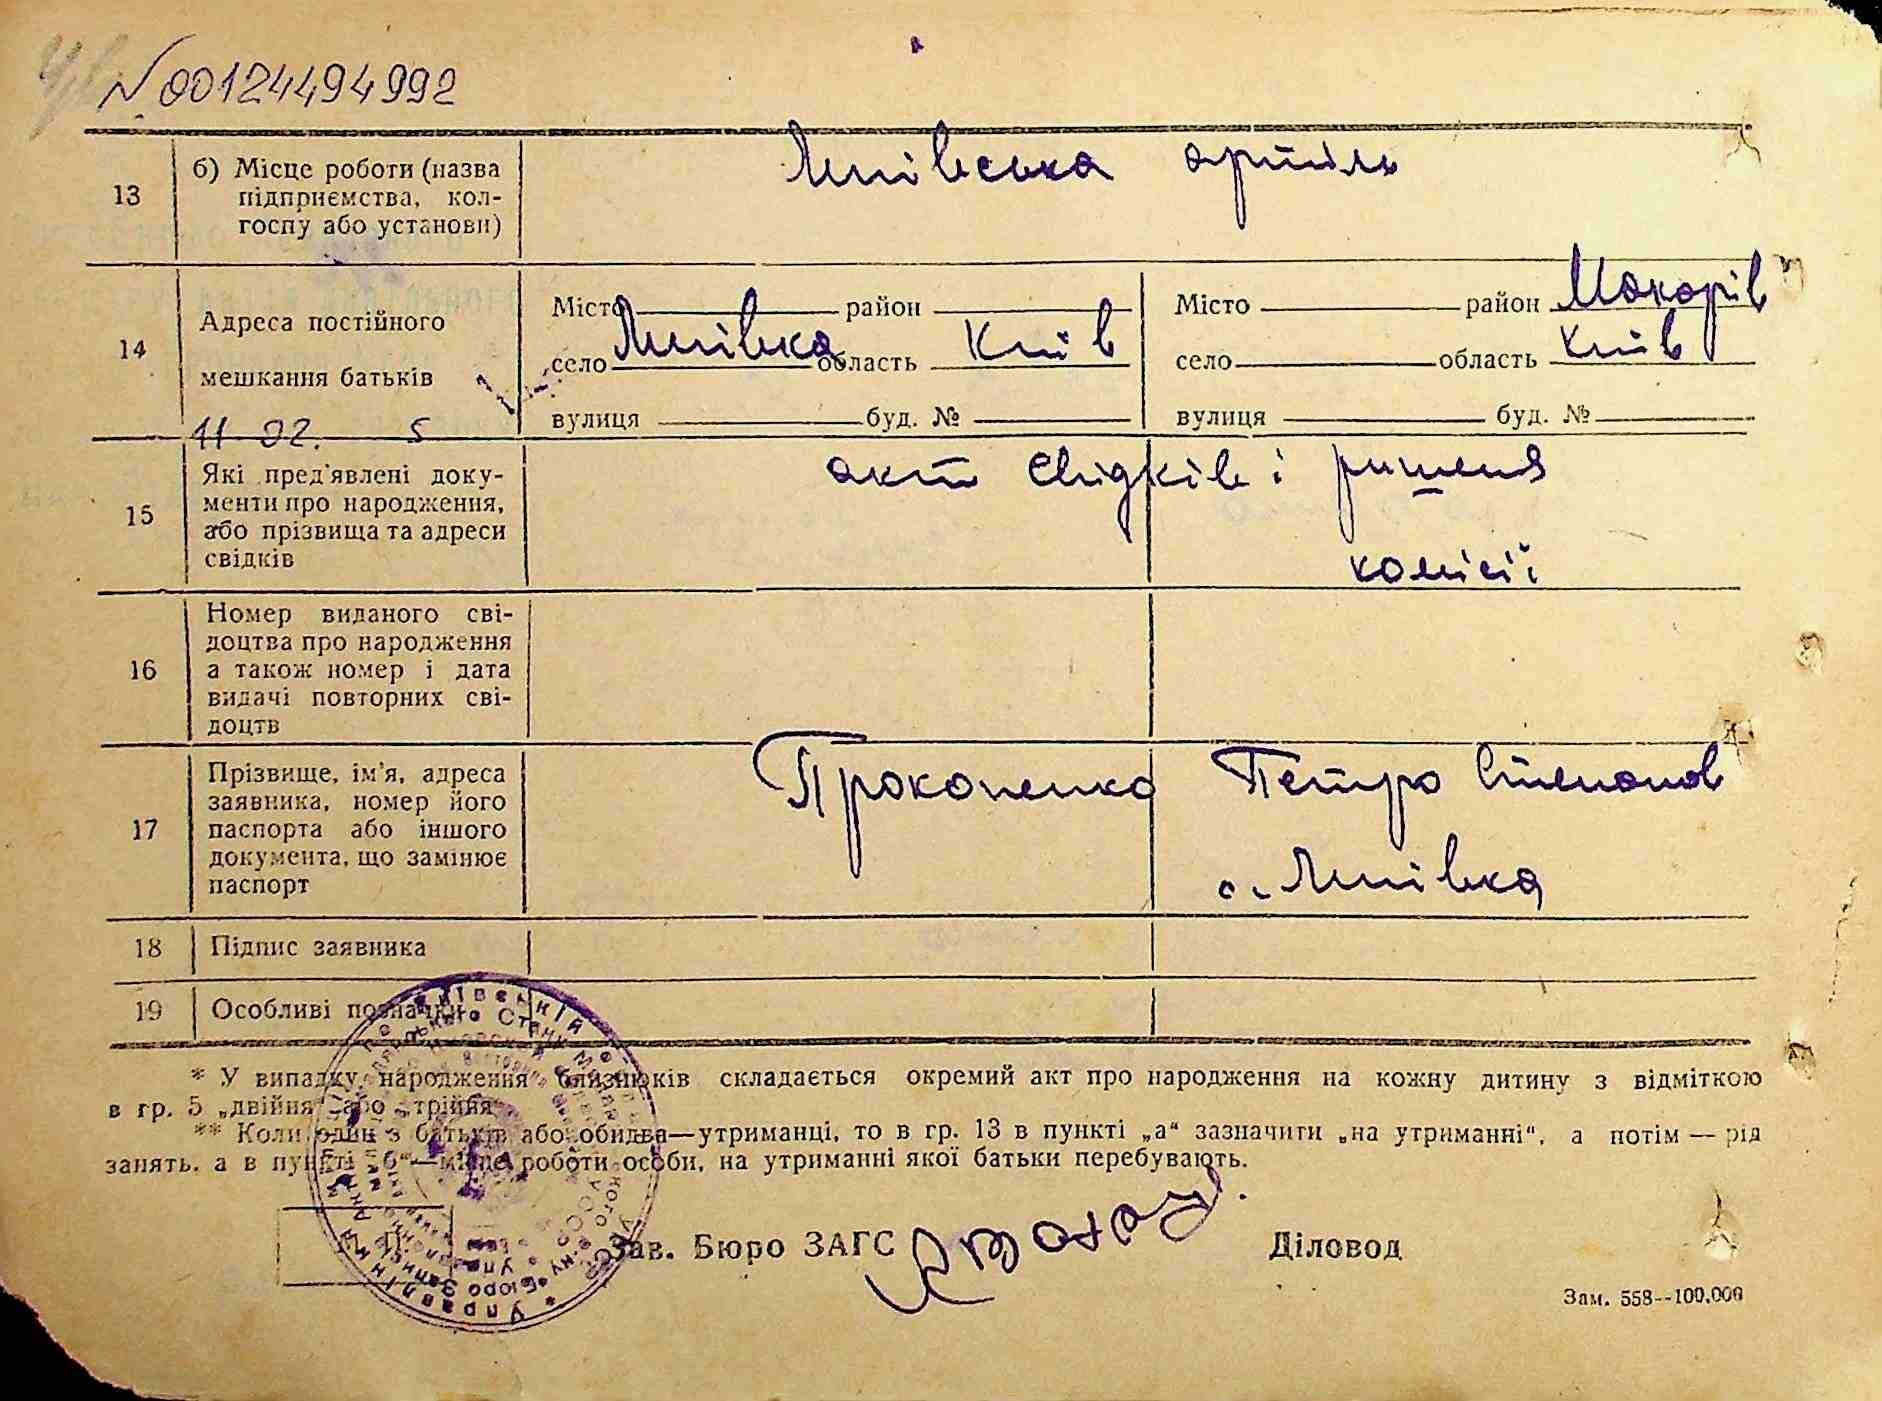 N 00124494992
13
б) Місце роботи (назва
підприємства, кол-
госпу або установи)
Липівська артіль
14
Адреса постійного
мешкання батьків
11 02. 5
Місто район
село Липівка область Київ
вулиця буд. №
Місто район Макарів
село область Київ
вулиця буд. №
15
Які пред'явлені доку-
менти про народження,
або прізвища та адреси
свідків
акт свідків і ришення
комісії
16
Номер виданого сві-
доцтва про народження
а також номер і дата
видачі повторних сві-
доцтв
17
Прізвище, ім'я, адреса
заявника, номер його
паспорта або іншого
документа, що замінює
паспорт
Прокопенко Петро Степанов
с. Липівка
18 Підпис заявника
19 Особливі позначки
* У випадку народження близнюків складається окремий акт про народження на кожну дитину з відміткою
в гр. 5 „двійня" або „трійня"
** Коли один з батьків або обидва—утриманці, то в гр. 13 в пункті „а" зазначити „на утриманні", а потім — рід
занять, а в пункті „б"—місце роботи особи, на утриманні якої батьки перебувають.
Зав. Бюро ЗАГС Діловод
Зам. 558--100.000